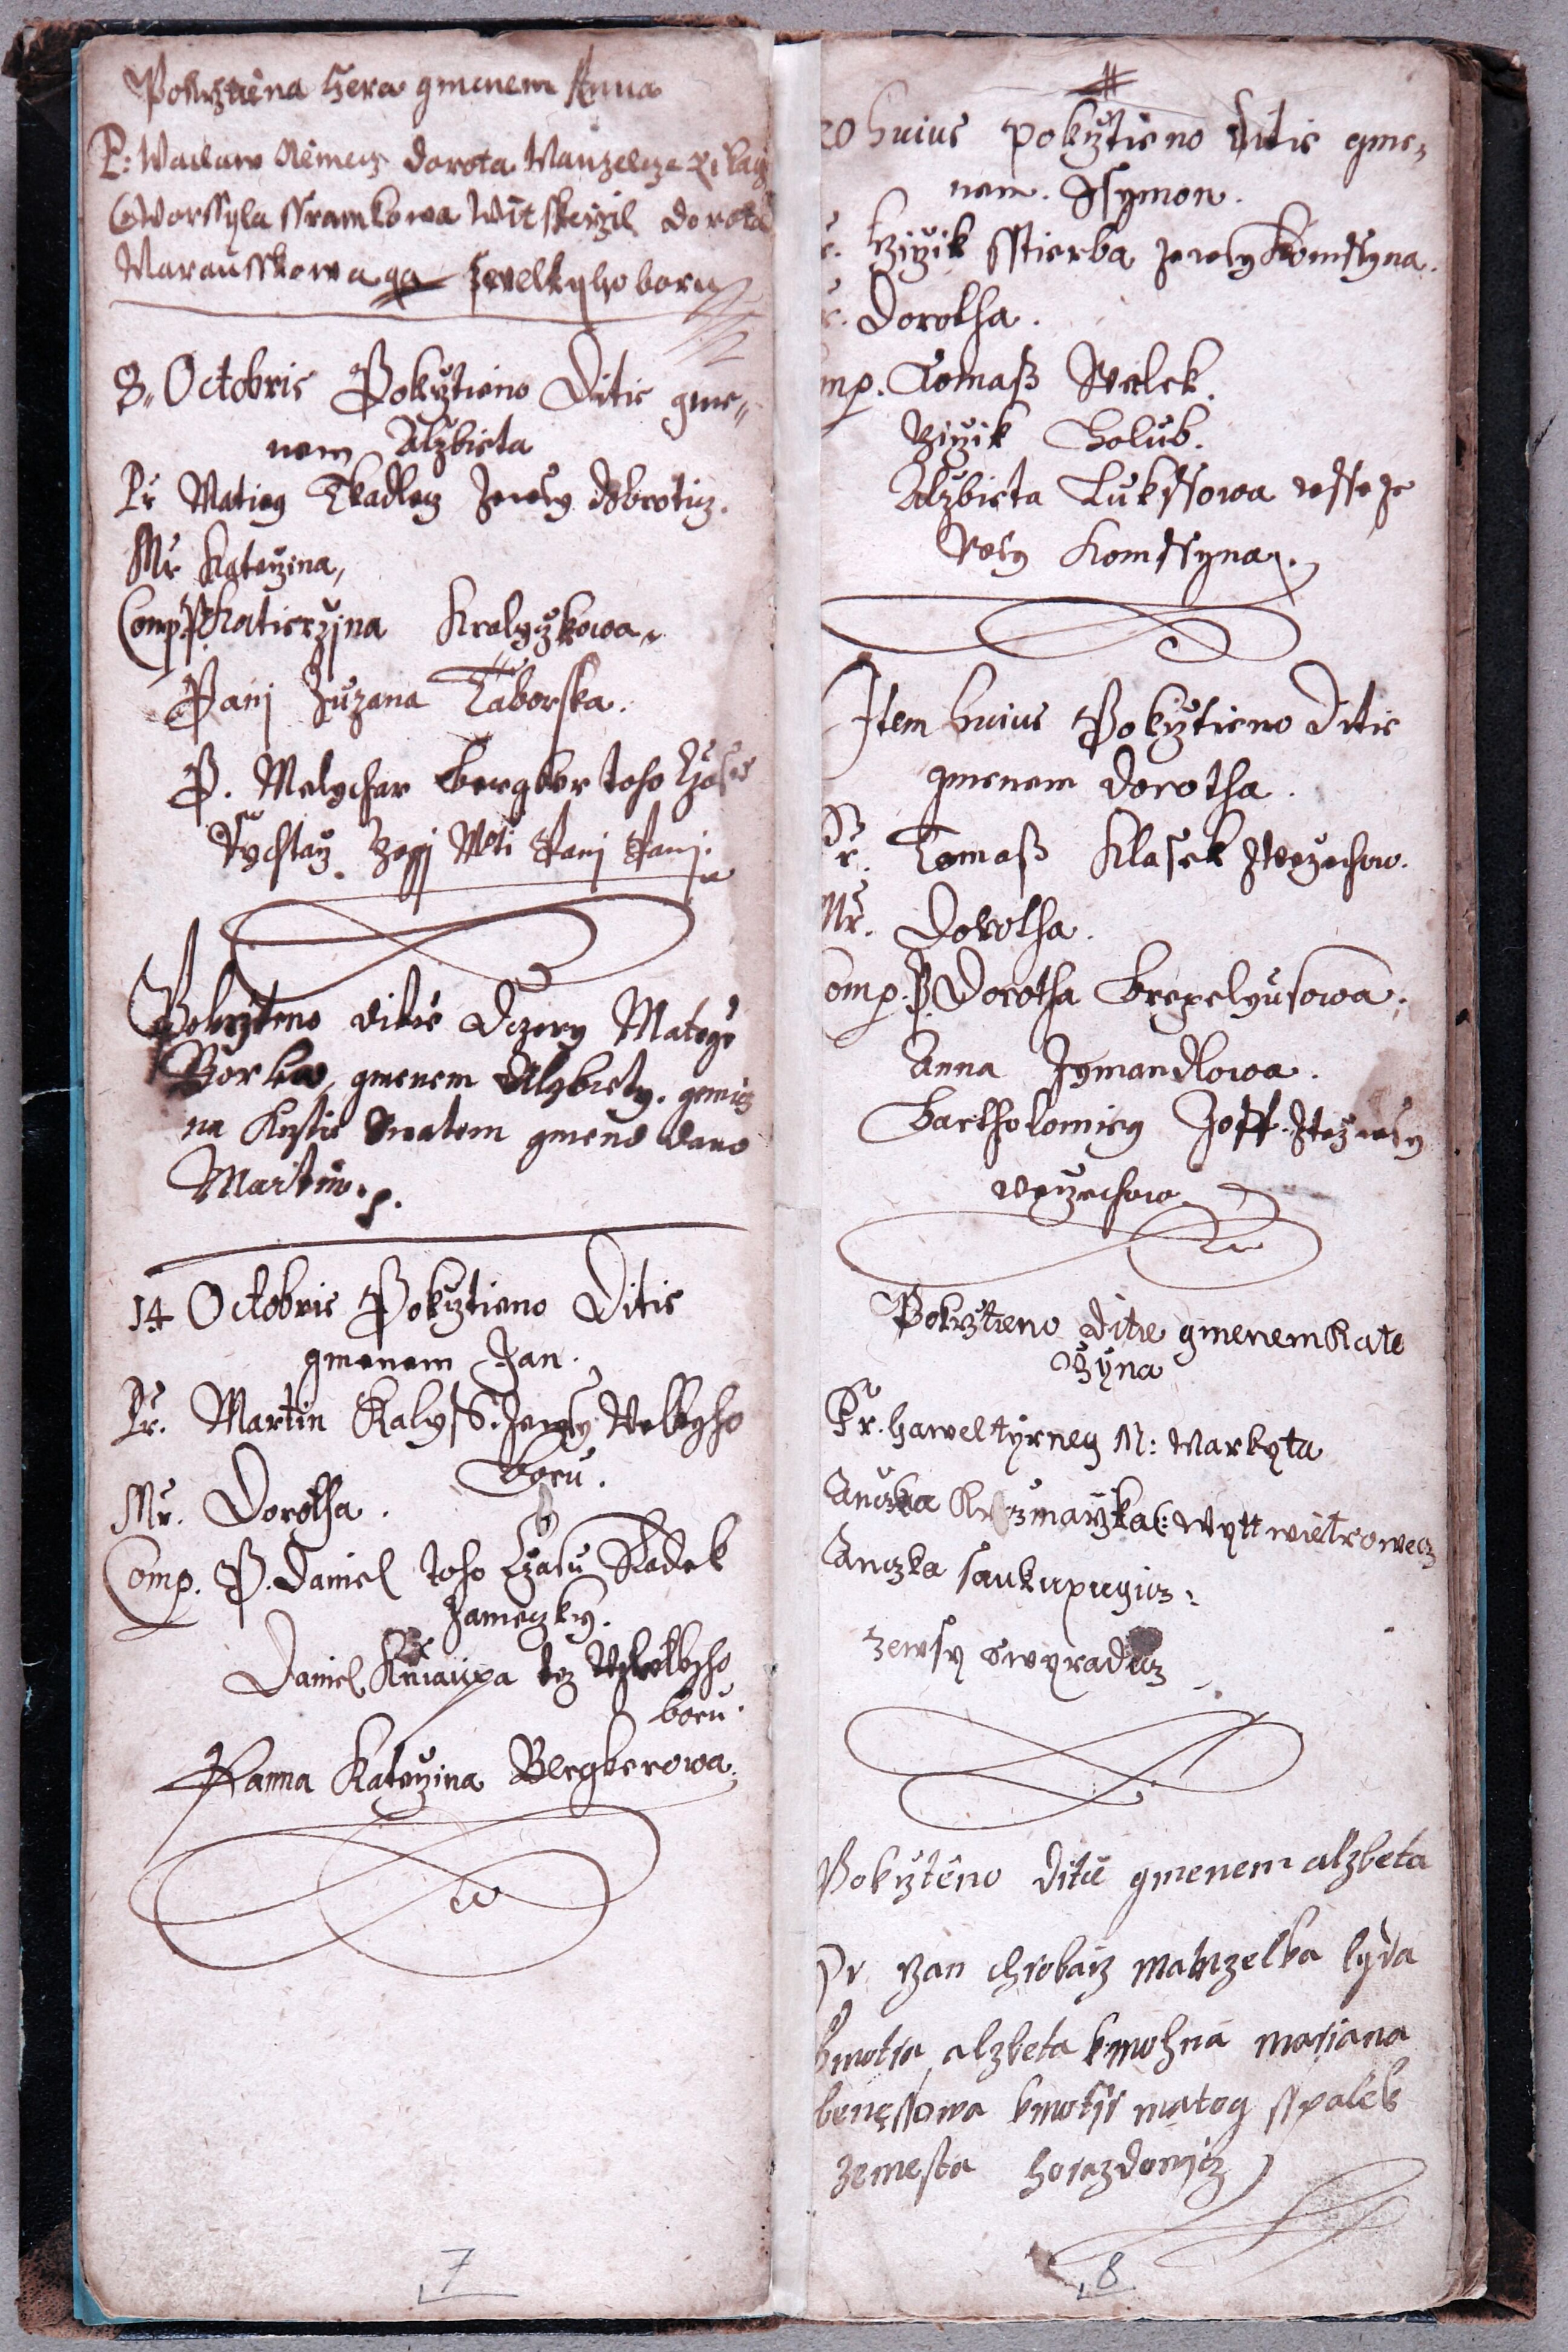 Pokrztiena Czera gmenem Anna
P: Waclaw Nemecz Dorota Manzelcze
Worssyla sramkowa Wit Dorota
Marausskowa zewelkyho boru
8. Octobris Pokrztieno Ditie gme„
nem Alzbieta
Pr Matieg Tkadlecz Zewsy Dobroticz.
Mr Katerzina,
Comp. P. Katierzina Kralyczkowa.
Panj Zuzana Taborska.
P. Melychar Bergker toho Czasu
Rychtarz Panj Panj.
Pokrzteno ditie Dczery Mategie
Borka, gmenem Alzbiety.
na Krztie Swatem gmeno dano
Martin.
14 Octobris Pokrztieno Ditie
gmenem Jan.
Pr. Martin Kalyss. Zewsy Welkyho
Boru.
Mr. Dorotha.
Comp. P. Daniel toho Czasu Radek
Zameczky.
Daniel Kniaupa tez Welkyho
boru.
Panna Katerzina Bergkerowa.
7
20 huius pokrztieno Ditie gme„
nem. Ssymon.
Girzik sstierba Zewsy Komssyna.
Dorotha.
mp. Tomass Walek.
Girzik Holub.
Alzbieta Lukssowa wsse Ze
Wsy Komssyna.
Item huius Pokrztieno Ditie
gmenem Dorotha.
Pr. Tomass Klasek Zwrzechow.
Mr. Dorotha.
omp. P. Dorotha
Anna Zymandlowa.
Bartholomieg Zoff. Ztez wsy
wrzechow.
Pokrztieno ditie gmenem Kate
Rzyna
Pr. Hawel tyrneg M: Markyta
Anczka Wytt wietrowecz
Anczka saukupugicz:
zewsy swyradicz
Pokrztěno ditie gmenem alzbeta
Pr yan chrobacz manzelka lyda
kmotra alzbeta kmohna mariana
benessowa kmotr mateg sspalek
zemesta horazdowicz
8